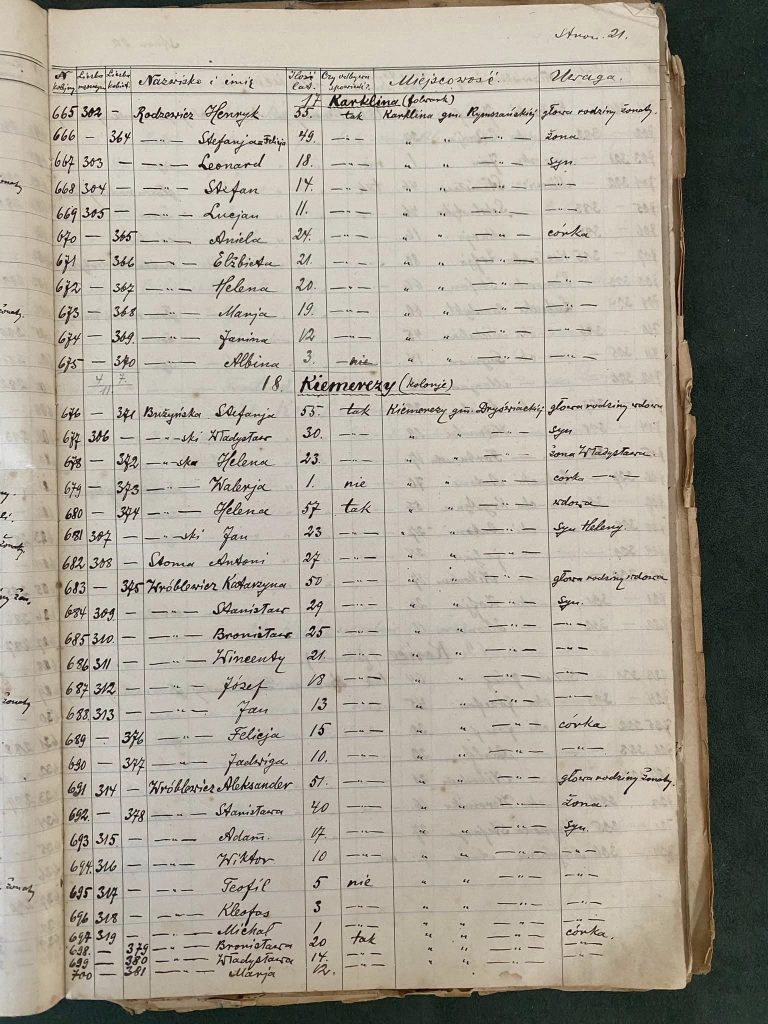 Stron. 21.
N kolejny Liczba mężczyzn Liczba kobiet Nazwisko i imię Ilość lat. Czy odbywa spowiedź? Miejscowość. Uwaga.
17 Karklina (folwark)
665 302 — Rodzewicz Henryk 55. tak Karklina gm. Rymszańskiej głowa rodziny żonaty.
666 — 364 —"— Stefanja=Felicja 49. —"— " " —"— żona
667 303 — —"— Leonard 18. —"— " " —"— syn.
668 304 — —"— Stefan 14. —"— " " —"— —"—
669 305 — —"— Lucjan 11. —"— " " —"— —"—
670 — 365 —"— Aniela 24. —"— " " —"— córka
671 — 366 —"— Elżbieta 21. —"— " " —"— —"—
672 — 367 —"— Helena 20. —"— " " —"— —"—
673 — 368 —"— Marja 19. —"— " " —"— —"—
674 — 369 —"— Janina 12 —"— " " —"— —"—
675 — 370 —"— Albina 3. —nie— " " —"— —"—
4. 7.
11
18. Kiemerezy (kolonje)
676 — 371 Bużyńska Stefanja 55. tak Kiemerezy gm. Dryświackiej głowa rodziny wdowa
677 306 — —"—ski Władysław 30. —"— " " —"— syn
678 — 372 —"—ska Helena 23. —"— " " —"— żona Władysława.
679 — 373 —"— Walerja 1. nie " " —"— córka —"—
680 — 374 —"— Helena 57 tak " " —"— wdowa
681 307 — —"—ski Jan 23 —"— " " —"— syn Heleny.
682 308 — Stoma Antoni 27 —"— " " —"—
683 — 375 Wróblewicz Katarzyna 50 —"— " " —"— głowa rodziny wdowa
684 309 — —"— Stanisław 29 —"— " " —"— syn.
685 310. — —"— Bronisław 25 —"— " " —"— —"—
686 311 — —"— Wincenty 21. —"— " " —"— —"—
687 312 — —"— Józef 18 —"— " " —"— —"—
688. 313 — —"— Jan 13 —"— " " —"— —"—
689 — 376 —"— Felicja 15 —"— " " —"— córka
690 — 377 —"— Jadwiga 10. —"— " " —"— —"—
691 314 — Wróblewicz Aleksander 51. —"— " " —"— głowa rodziny żonaty.
692. — 378 —"— Stanisława 40 —"— " " —"— żona
693 315 — —"— Adam. 17 —"— " " —"— syn.
694. 316 — —"— Wiktor 10 —"— " " —"— —"—
695 317 — —"— Teofil 5 nie " " —"— —"—
696 318 — —"— Kleofas 3 —"— " " —"— —"—
697 319 — —"— Michał 1 —"— " " —"— —"—
698. — 379 —"— Bronisława 20 tak " " —"— córka.
699 — 380 —"— Władysława 14. —"— " " —"— —"—
700 — 381 —"— Marja 12. —"— " " —"— —"—